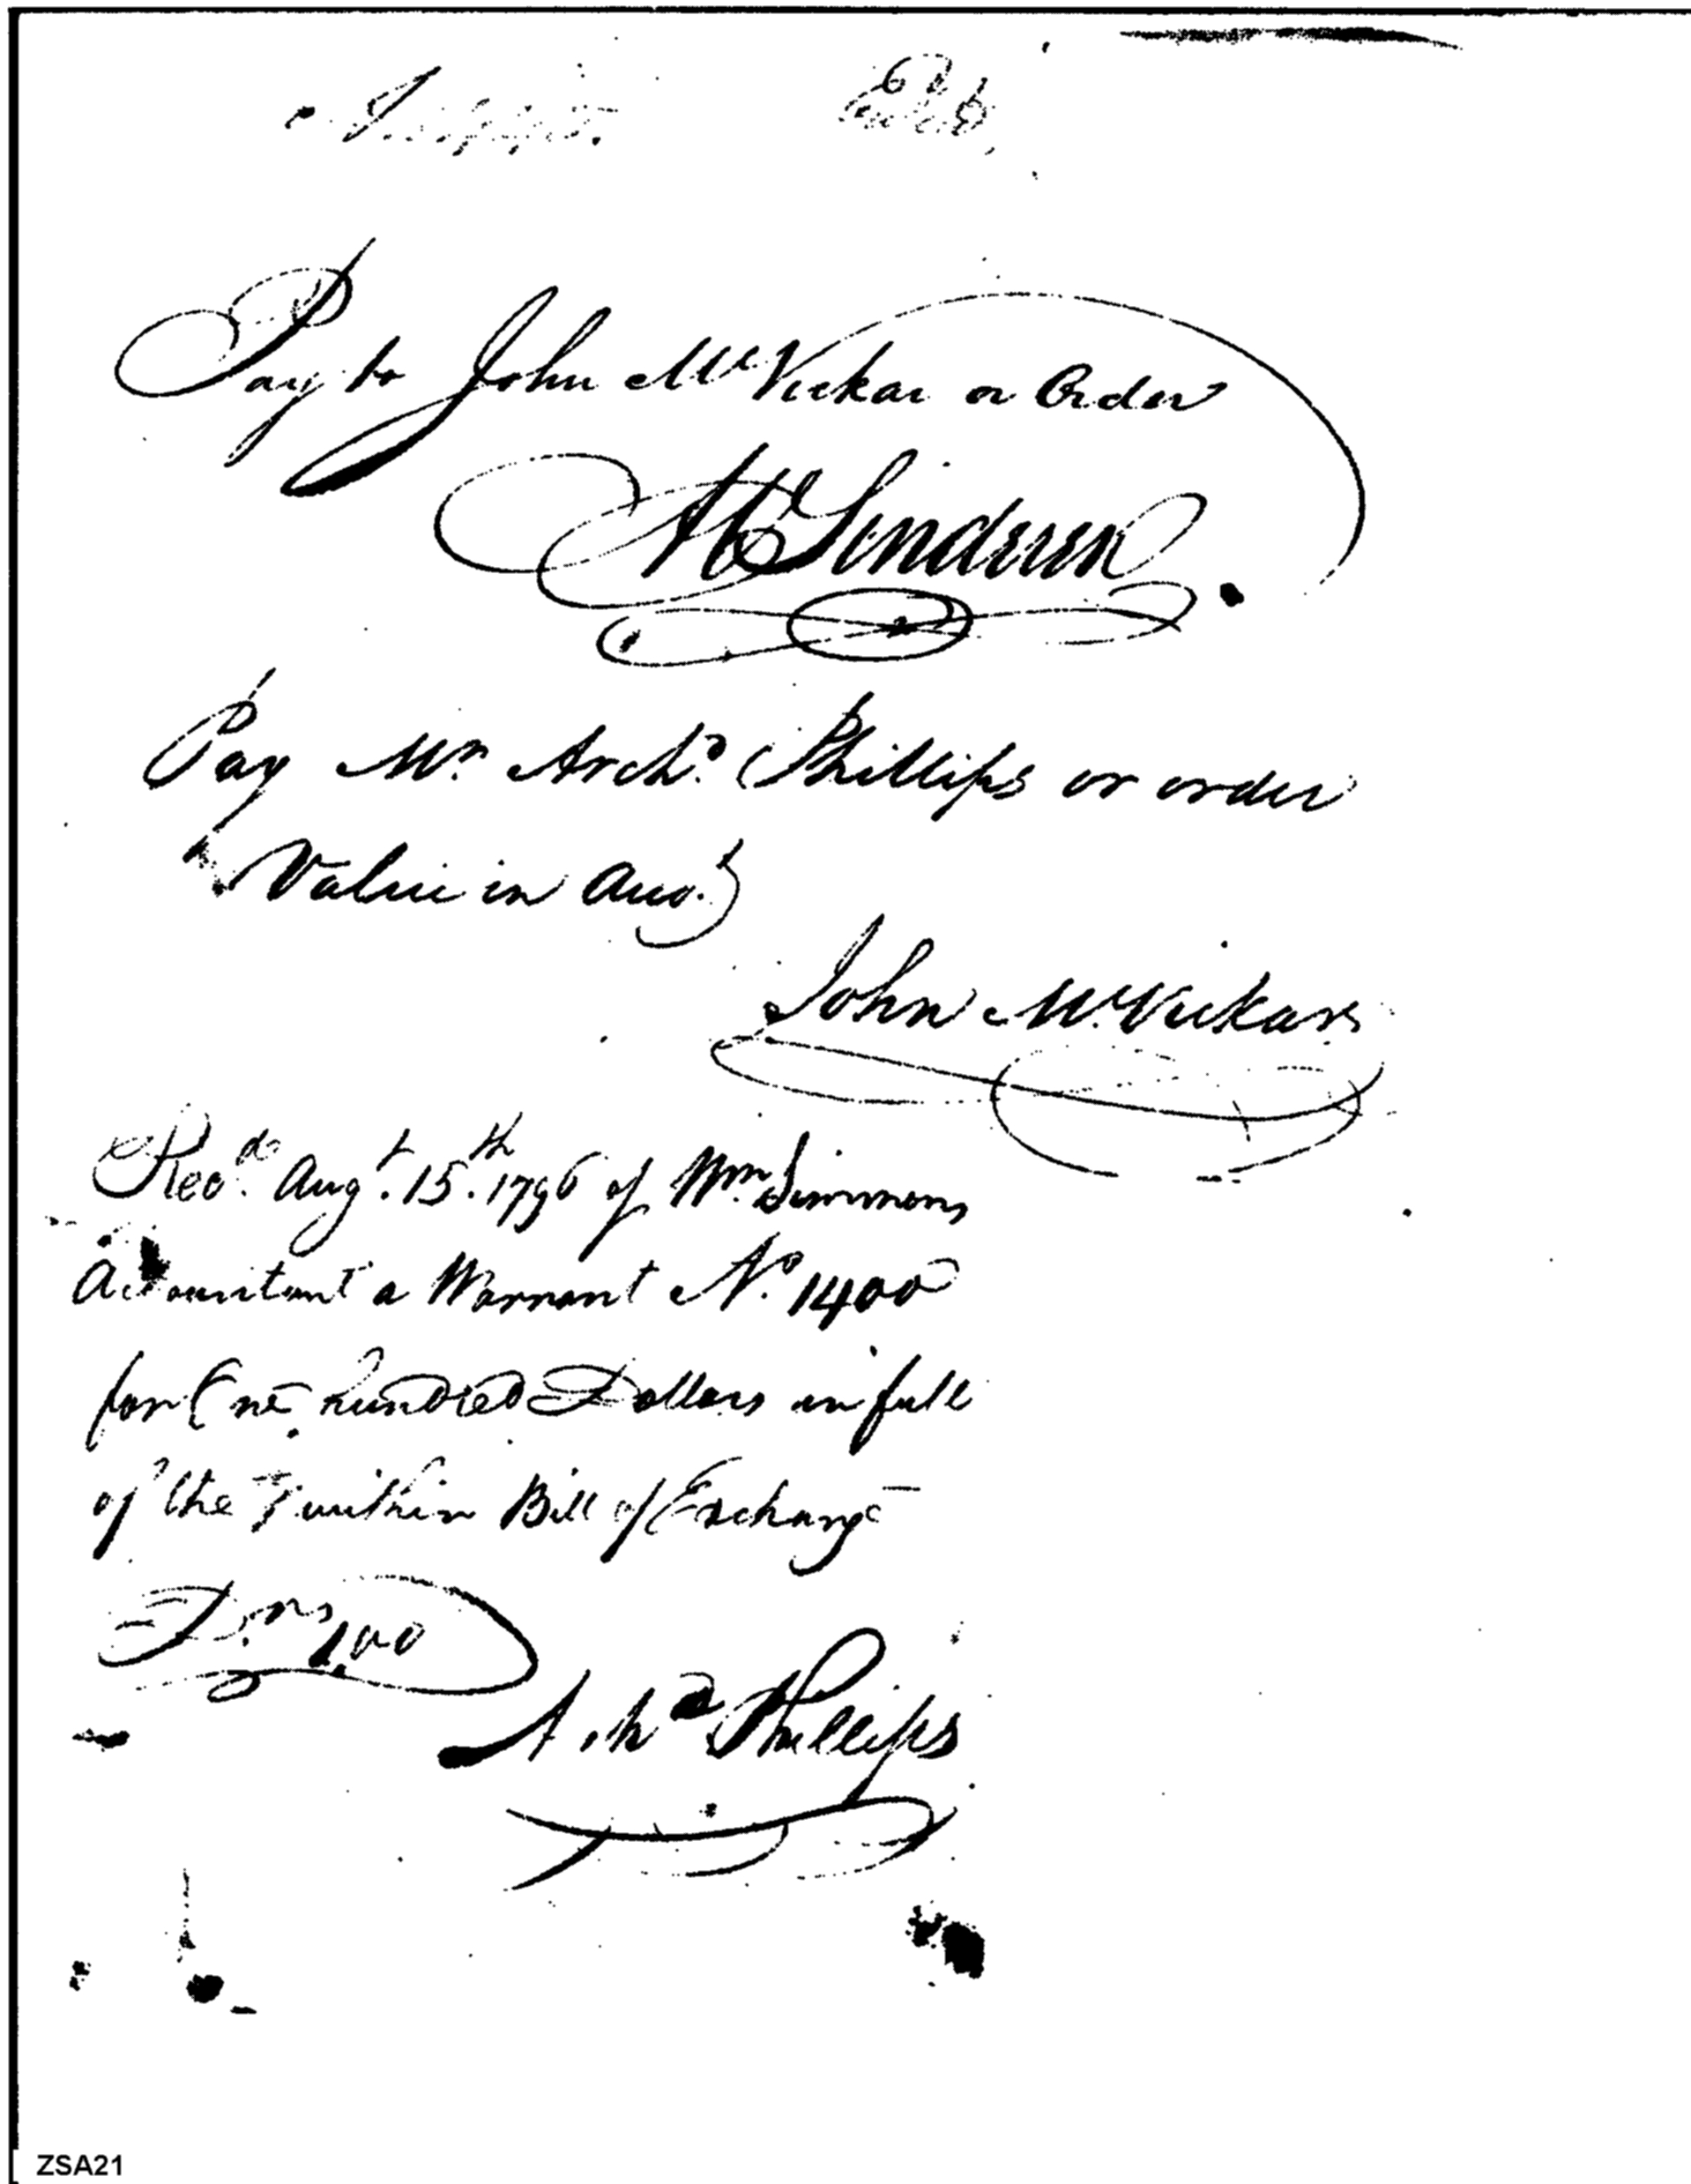 Pay to John McVickar or Order
Pay Mr. Archd. Phillips or order
Value in Acco.
John McVickar
Recd. Augt. 15th. 1796 of Wm Simmons
Accountant a Warrant No. 1400
for One hundred Dollars in full
of the within Bill of Exchange
100
Archd Phillips
ZSA21